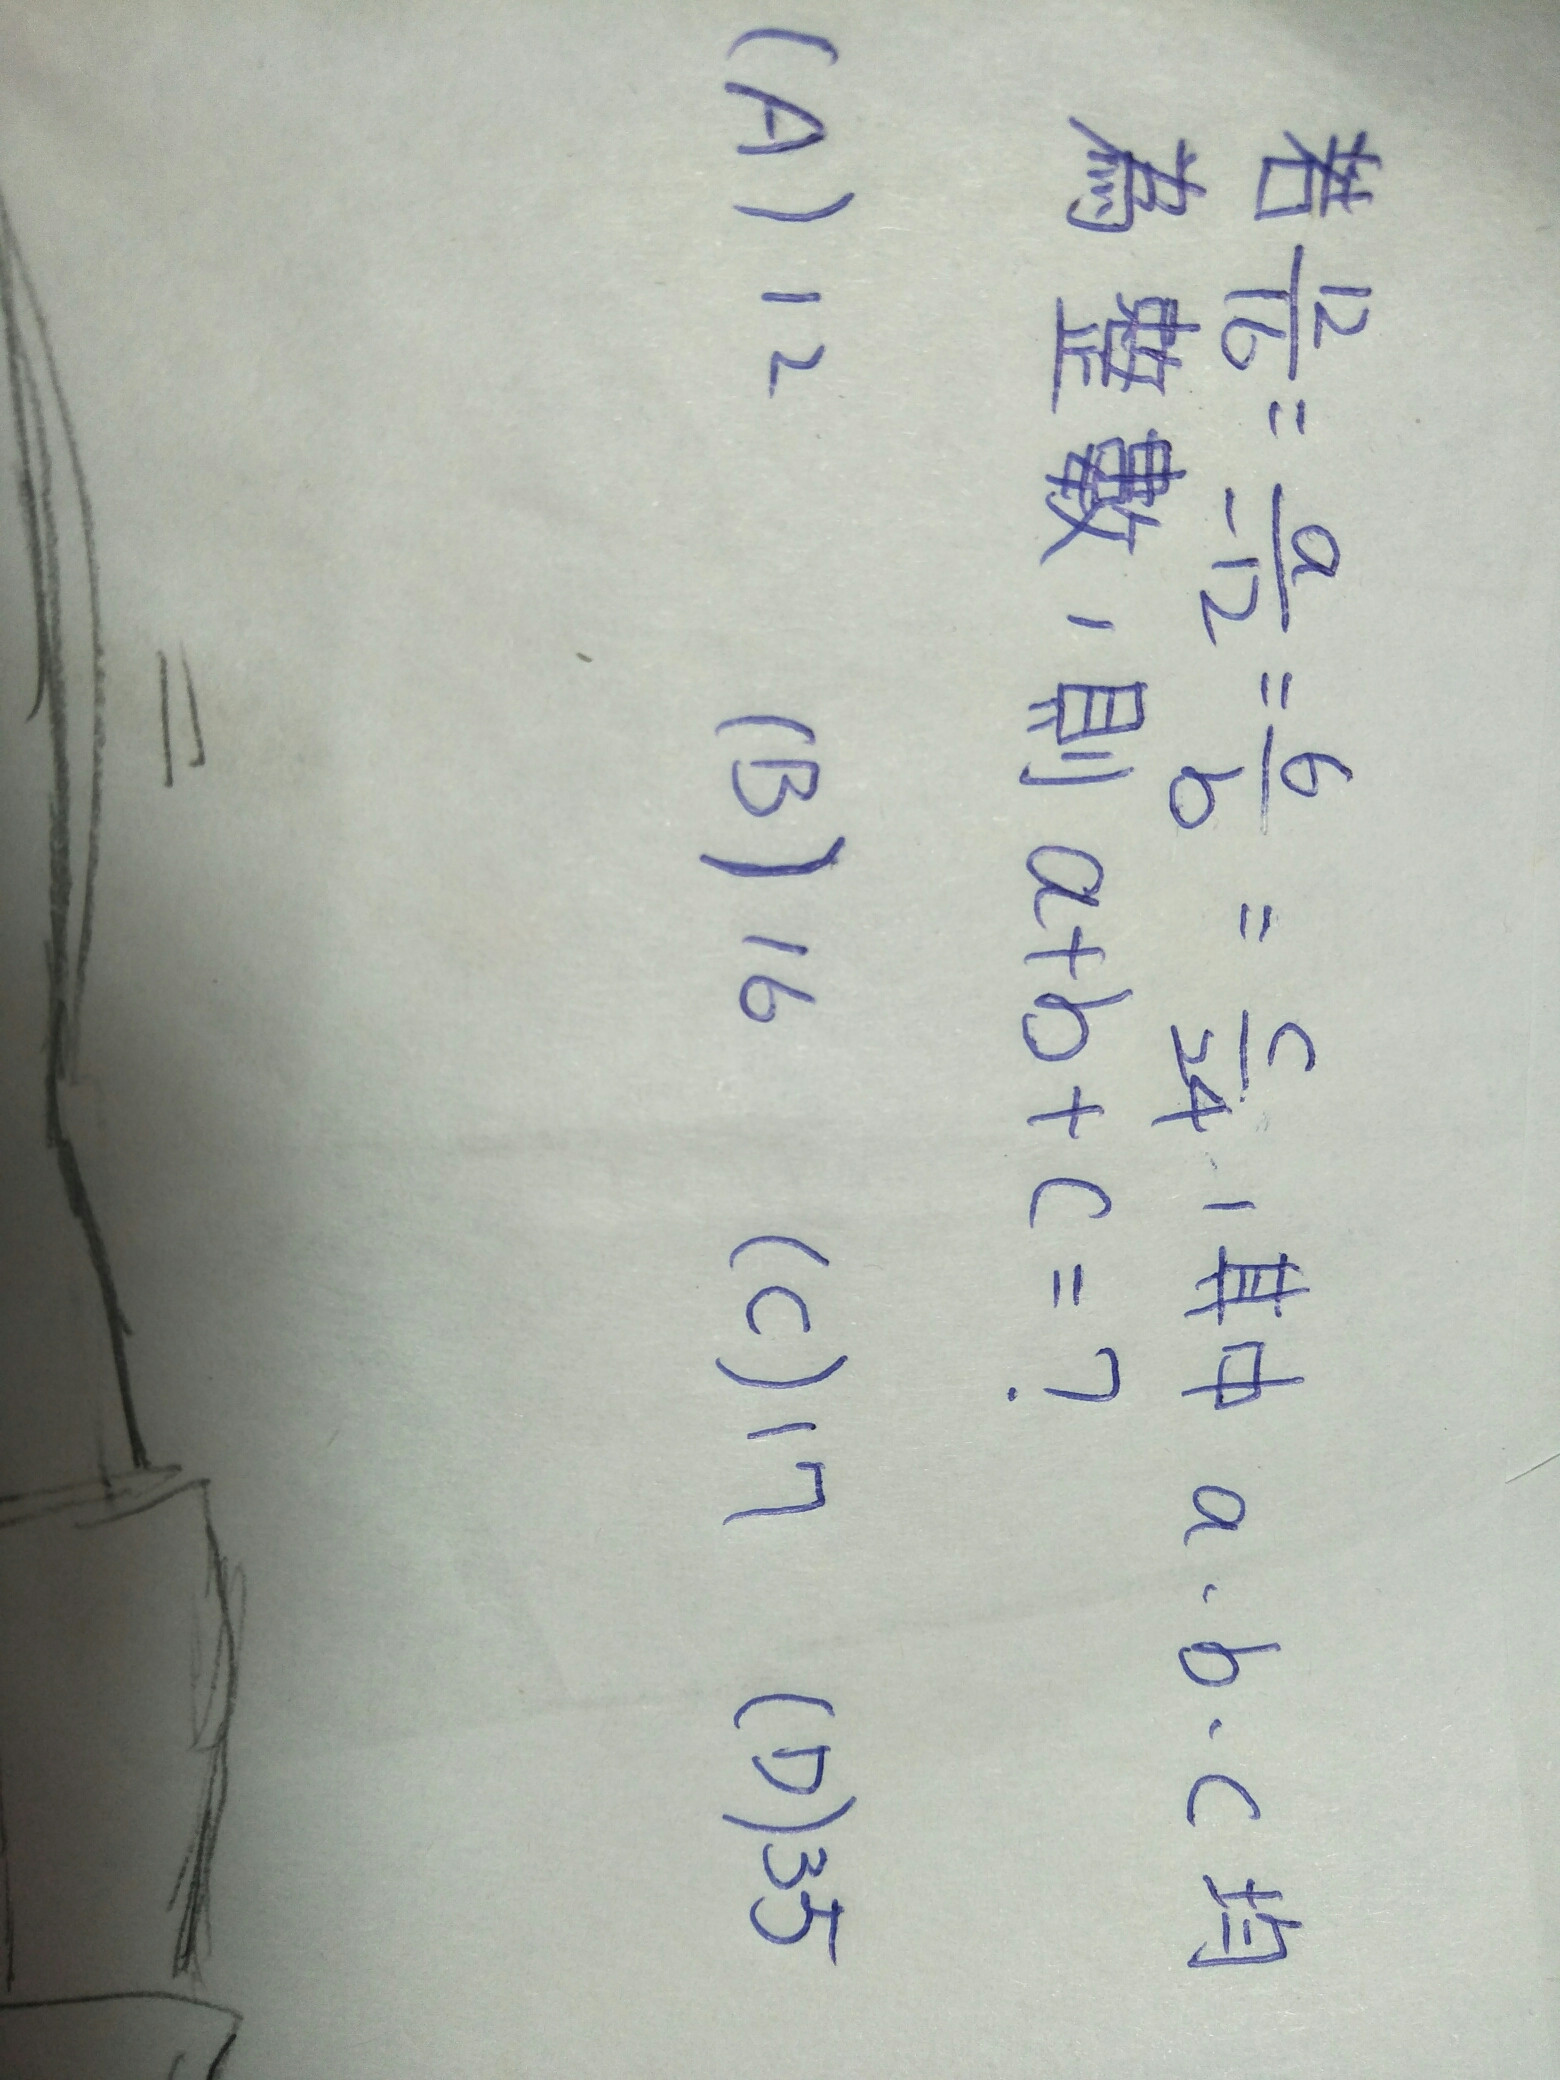 若12/16=a/-12=6/b=c/24,其中a、b、c均
為整數,則a+b+c=?
(A)12 (B)16 (C)17 (D)35